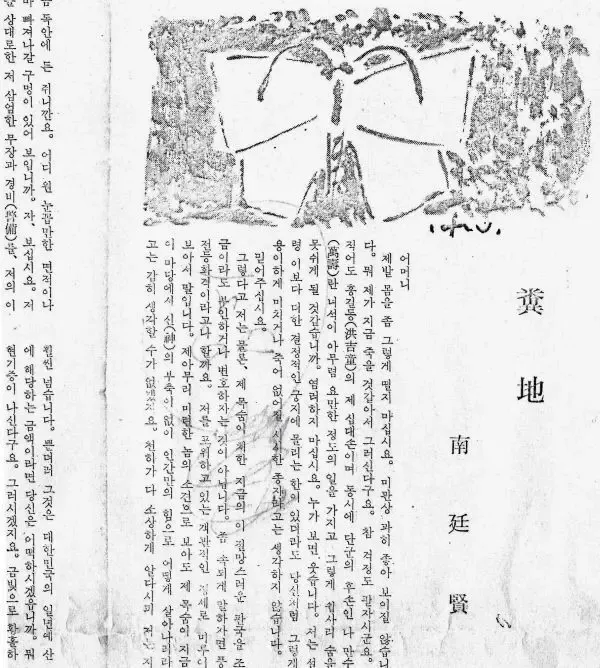 糞地
南廷賢
어머니
제발 몸을 좀 그렇게 떨지 마십시요. 미관상 과히 좋아 보이질 않습니
다. 뭐 제가 지금 죽을 것같아서 그러신다구요. 참 걱정도 팔자시군요.
적어도 홍길동(洪吉童)의 제 십대손이며 동시에 단군의 후손인 나 만수
(萬壽)란 녀석이 아무렴 요만한 정도의 일을 가지고 그렇게 쉽사리 숨을
못쉬게 될 것같습니까. 염려하지 마십시요. 누가 보면 웃습니다. 저는 설
령 이보다 더한 결정적인 궁지에 몰리는 한이 있더라도 당신처럼 그렇게
용이하게 미치거나 죽어 없어질 시시한 종자라고는 생각하지 않습니다.
믿어주십시요.
그렇다고 저는 물론, 제 목숨이 처한 지금의 이 절망스러운 판국을 조
금이라도 부인하거나 변호하자는 것이 아닙니다. 좀 속되게 말하자면 풍
전등화격이라고나 할까요. 저를 포위하고 있는 객관적인 정세로 미루어
보아서 말입니다. 제아무리 미련한 놈의 소견으로 보아도 제 목숨이 지금
이 마당에서 신(神)의 부축이 없이 인간만의 힘으로 어떻게 살아나리라
고는 감히 생각할 수가 없겠지요. 천하가 다 소상하게 알다시피 저는 지
금 독안에 든 쥐니깐요. 어디 원 눈꼽만한 면적이나
마 빠져나갈 구멍이 있어 보입니까. 자, 보십시요. 저
를 상대로한 저 삼엄한 무장과 경비(警備)를, 저의 이
훨씬 넘습니다. 뿐더러 그것은 대한민국의 일년예산
에 해당하는 금액이라면 당신은 어떡하시겠읍니까. 뭐
현기증이 나신다구요. 그러시겠지요. 금빛으로 황홀하